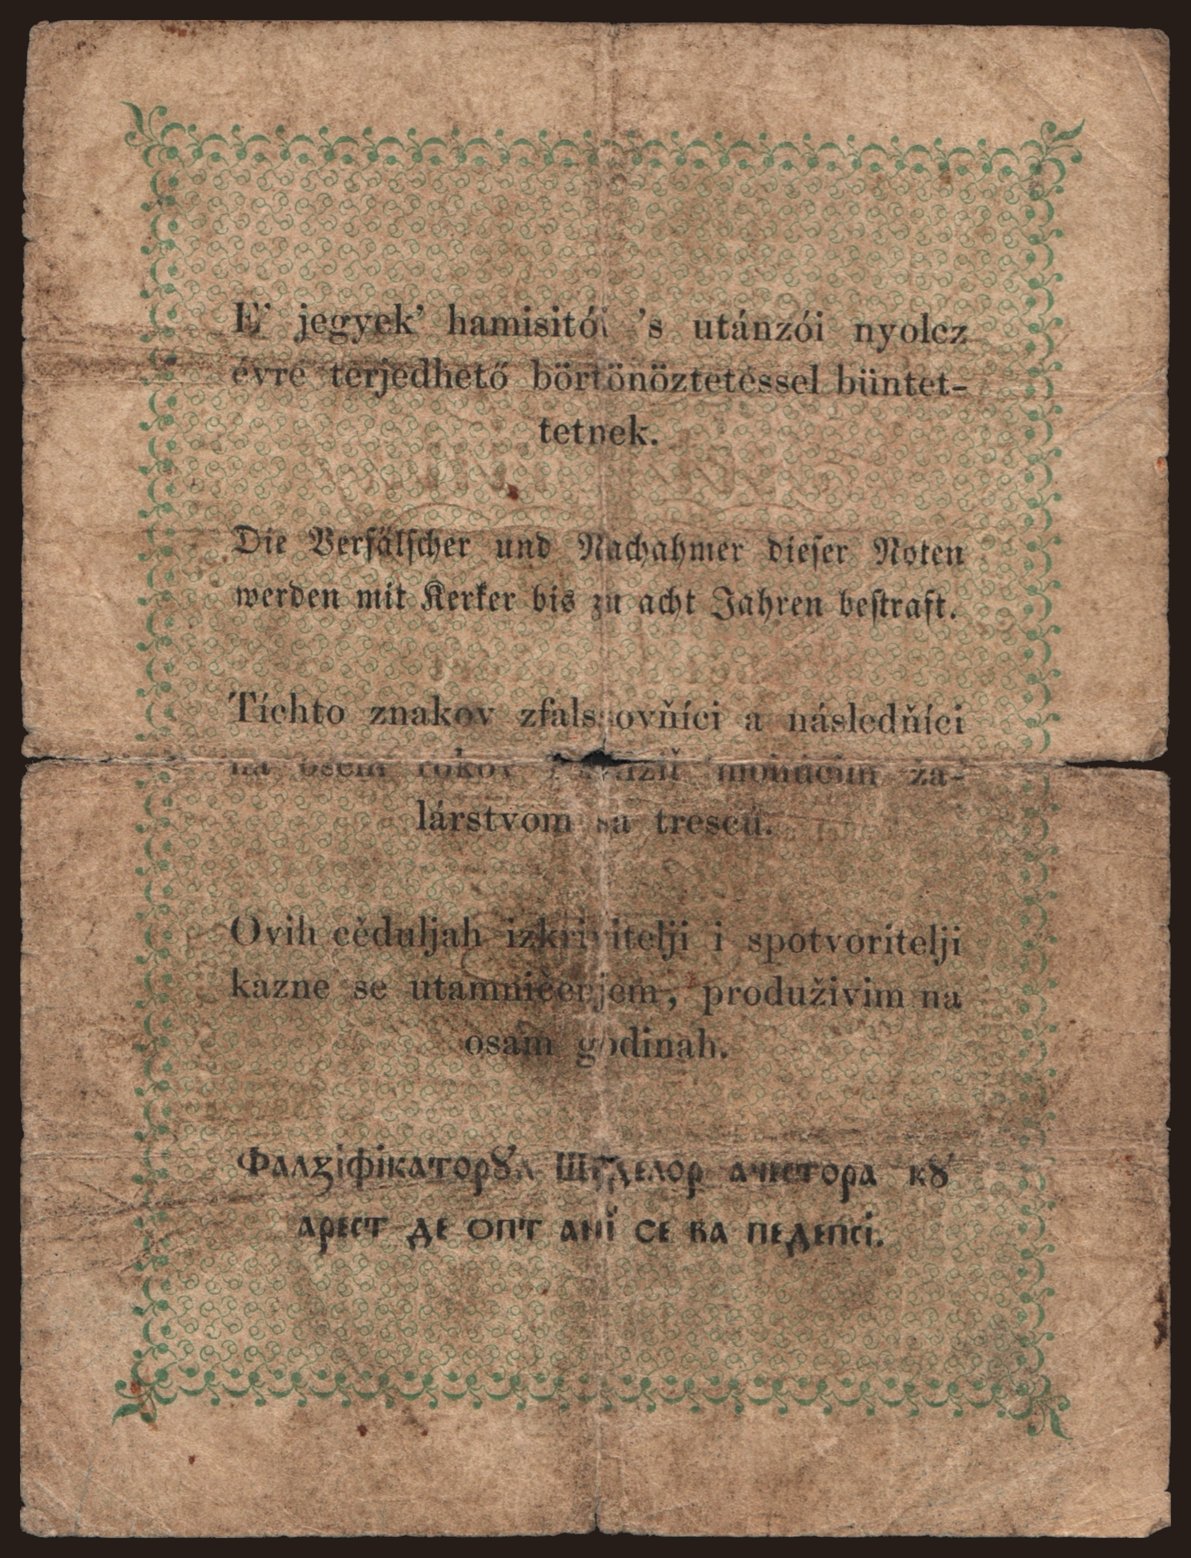 E' jegyek' hamisitói 's utánzói nyolcz
évre terjedhető börtönöztetéssel büntet-
tetnek.
Die Verfälscher und Nachahmer dieser Noten
werden mit Kerker bis zu acht Jahren bestraft.
Tíchto znakov zfalssovňíci a následňíci
na osem rokov moħúcim ža-
lárstvom sa trescú.
Ovih cěduljah izkrivitelji i spotvoritelji
kazne se utamničenjem, produživim na
osam godinah.
Фалꙁіфікаторꙋл ачестора кꙋ
арест де опт ані се ва педепсі.